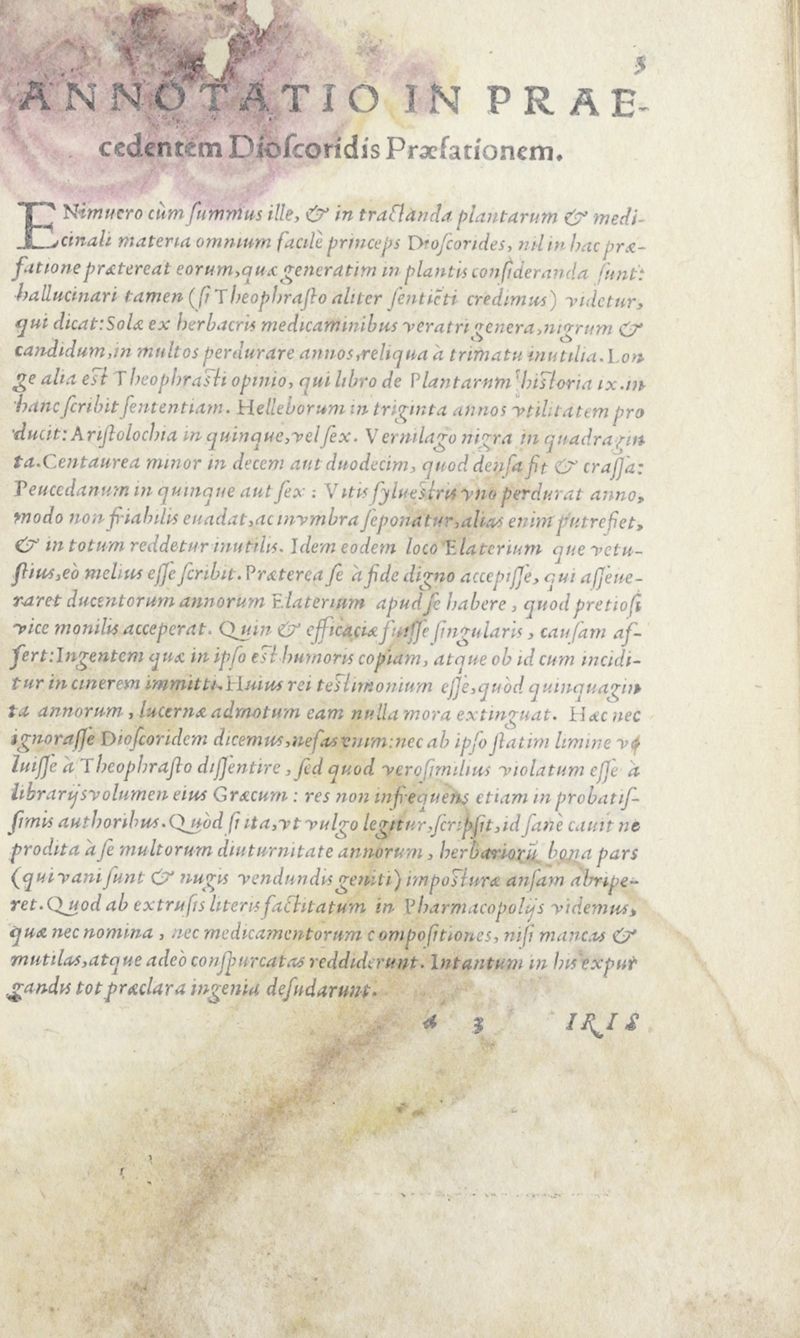 5
ANNOTATIO IN PRAE-
cedentem Dioſcoridis Præfationem.
ENimuero cùm ſummus ille, & in tractanda plantarum & medi-
cinali materia omnium facilè princeps Dioſcorides, nil in hac præ-
fatione prætereat eorum, quæ generatim in plantis conſideranda ſunt:
hallucinari tamen (ſi Theophraſto aliter ſentiēti credimus) videtur,
qui dicat: Solæ ex herbaceis medicaminibus veratri genera, nigrum &
candidum, in multos perdurare annos, reliqua à trimatu inutilia. Lon
ge alia est Theophrasti opinio, qui libro de Plantarum historia ix. in
hanc ſcribit ſententiam. Helleborum in triginta annos vtilitatem pro
ducit: Ariſtolochia in quinque, vel ſex. Vernilago nigra in quadragin
ta. Centaurea minor in decem aut duodecim, quod denſa ſit & craſſa:
Peucedanum in quinque aut ſex: Vitis ſylueſtris vno perdurat anno,
modo non friabilis euadat, ac in vmbra ſeponatur, alias enim putrefiet,
& in totum reddetur inutilis. Idem eodem loco Elaterium que vetu-
ſtius, eò melius eſſe ſcribit. Præterea ſe à fide digno accepiſſe, qui aſſeue-
raret ducentorum annorum Elaterium apud ſe habere, quod pretioſi
vice monilis acceperat. Quin & efficaciæ fuiſſe ſingularis, cauſam af-
fert: Ingentem quæ in ipſo est humoris copiam, atque ob id cum incidi-
tur in cinerem immitti. Huius rei teſtimonium eſſe, quòd quinquagin
ta annorum, lucernæ admotum eam nulla mora extinguat. Hæc nec
ignoraſſe Dioſcoridem dicemus, nefas enim: nec ab ipſo ſtatim limine vo
luiſſe à Theophraſto diſſentire, ſed quod veroſimilius violatum eſſe à
librarijs volumen eius Græcum: res non infrequens etiam in probatiſ-
ſimis authoribus. Quòd ſi ita, vt vulgo legitur, ſcripſit, id ſanè cauit ne
prodita à ſe multorum diuturnitate annorum, herbariorū bona pars
(qui vani ſunt & nugis vendundis geniti) impoſturæ anſam abripe-
ret. Quod ab extruſis literis factitatum in Pharmacopolijs videmus,
quæ nec nomina, nec medicamentorum compoſitiones, niſi mancas &
mutilas, atque adeò conſpurcatas reddiderunt. Intantum in his expur
gandis tot præclara ingenia deſudarunt.
a 3 IRIS